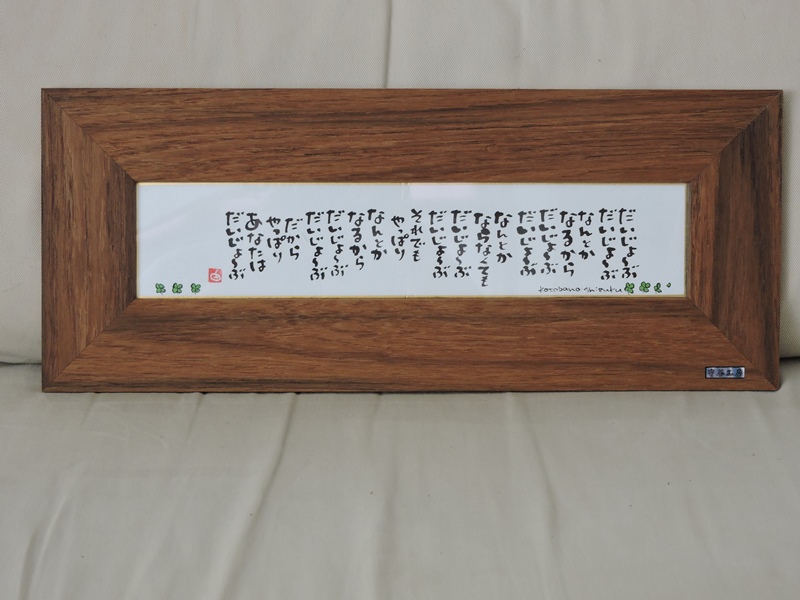 だいじょ〜ぶ
だいじょ〜ぶ
なんとか
なるから
だいじょ〜ぶ
だいじょ〜ぶ
なんとか
ならなくても
だいじょ〜ぶ
だいじょ〜ぶ
それでも
やっぱり
なんとか
なるから
だいじょ〜ぶ
だいじょ〜ぶ
だから
やっぱり
あなたは
だいじょ〜ぶ
kotobano shizuku